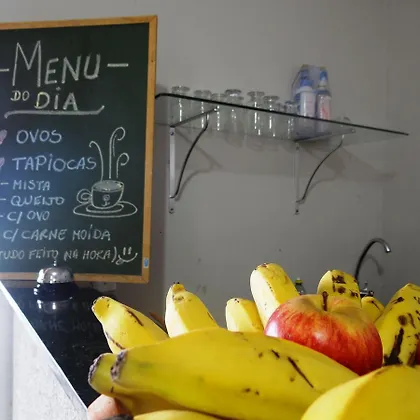 - MENU -
DO DIA
OVOS
TAPIOCAS
- MISTA
- QUEIJO
- C/ OVO
C/ CARNE MOÍDA
TUDO FEITO NA HORA)